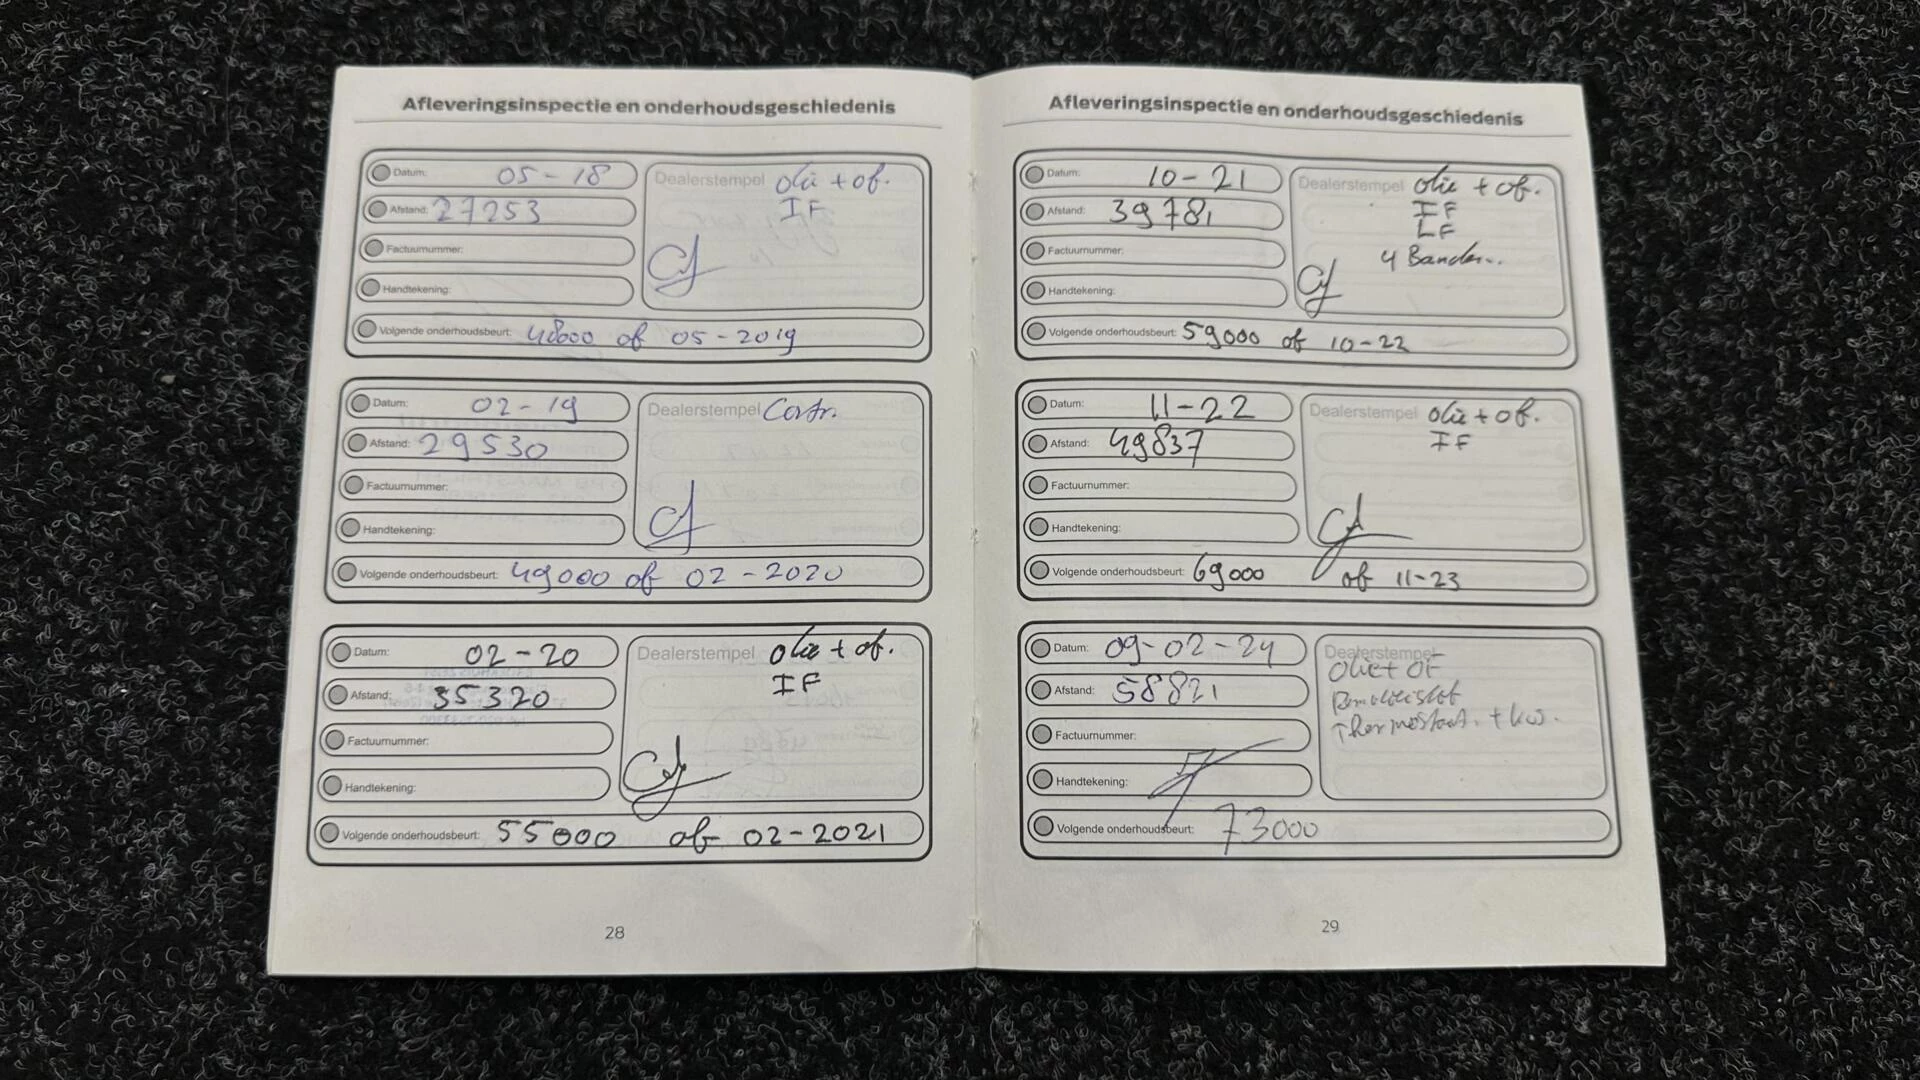 Afleveringsinspectie en onderhoudsgeschiedenis
Datum: 05-18
Afstand: 27253
Factuurnummer:
Handtekening:
Dealerstempel olie + of.
IF
Volgende onderhoudsbeurt: 48000 of 05-2019
Datum: 02-19
Afstand: 29530
Factuurnummer:
Handtekening:
Dealerstempel Contr.
Volgende onderhoudsbeurt: 49000 of 02-2020
Datum: 02-20
Afstand: 35320
Factuurnummer:
Handtekening:
Dealerstempel olie + of.
IF
Volgende onderhoudsbeurt: 55000 of 02-2021
28
Afleveringsinspectie en onderhoudsgeschiedenis
Datum: 10-21
Afstand: 39781
Factuurnummer:
Handtekening:
Dealerstempel olie + of.
IF
LF
4 Banden..
Volgende onderhoudsbeurt: 59000 of 10-22
Datum: 11-22
Afstand: 49837
Factuurnummer:
Handtekening:
Dealerstempel olie + of.
IF
Volgende onderhoudsbeurt: 69000 of 11-23
Datum: 09-02-24
Afstand: 58821
Factuurnummer:
Handtekening:
Dealerstempel
Olie + OF
Remvloeistof
Thermostaat. + kv.
Volgende onderhoudsbeurt: 73000
29